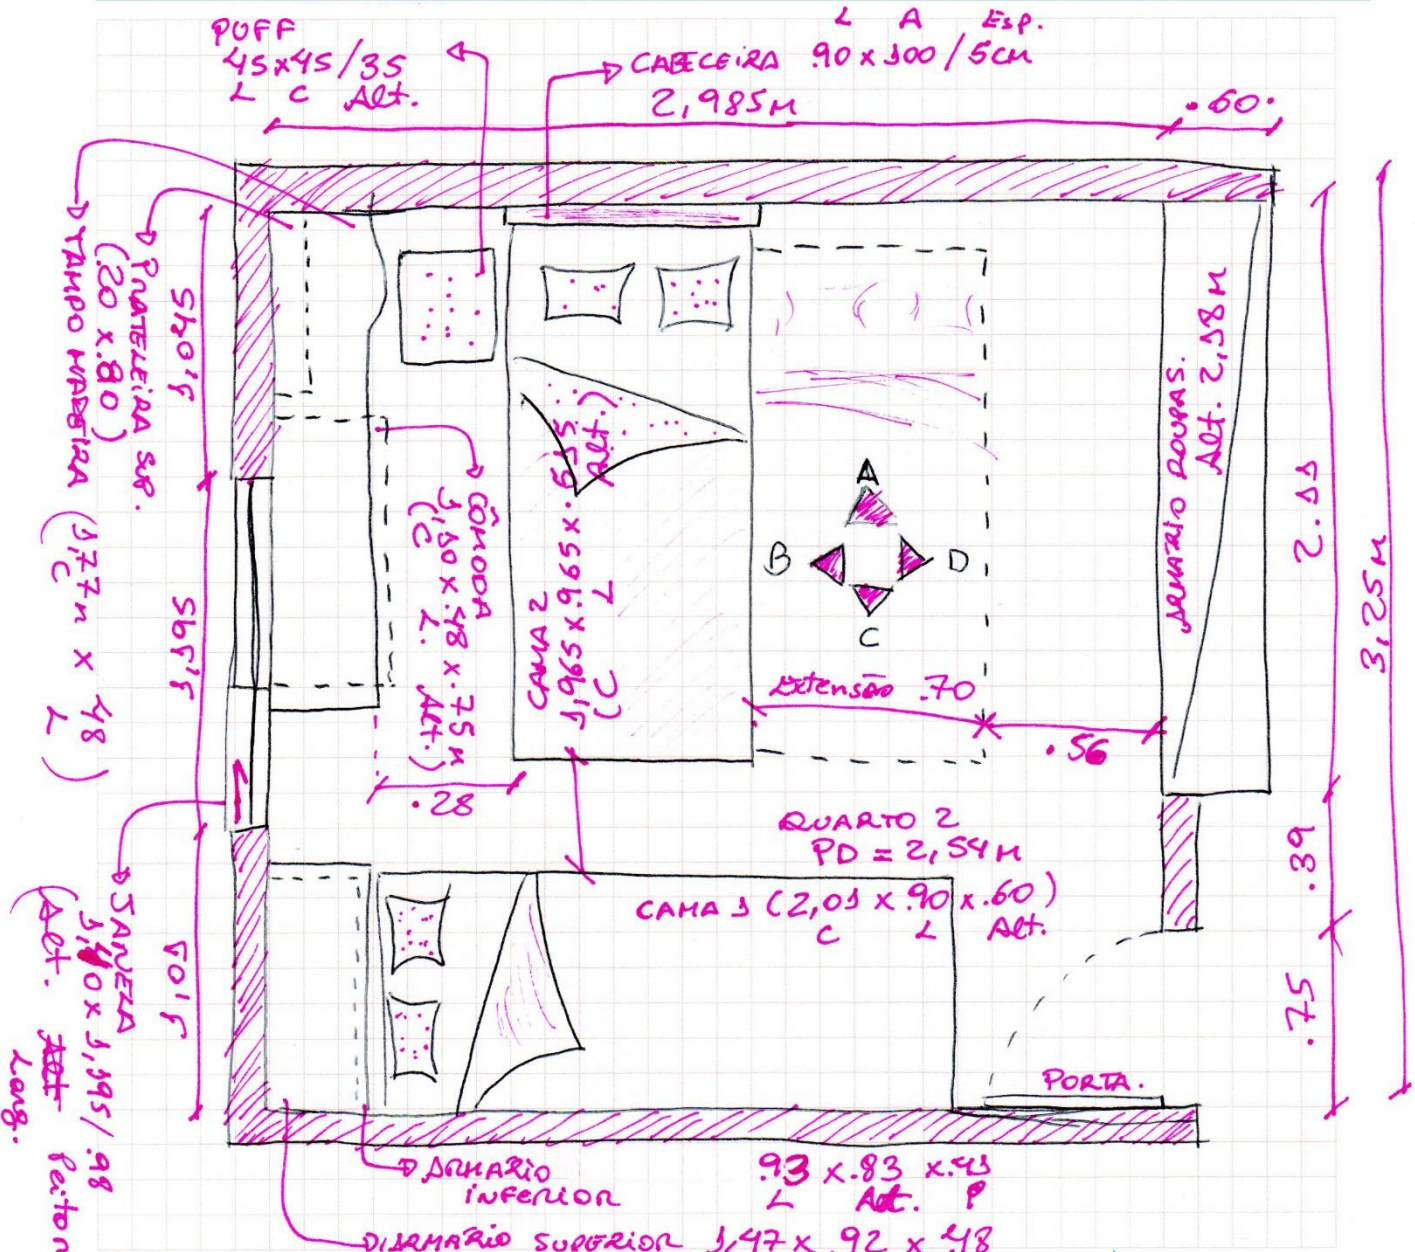 PUFF
45x45/35
L C Alt.
L A Esp.
CABECEIRA .90 x 100 / 5cm
2,985M
.60
PRATELEIRA SUP.
(.20 x .80)
TAMPO MADEIRA (1,77M x .48)
C L
1,045
1,195
1,01
CÔMODA
1,10 x .48 x .75M
(C L. Alt.)
CAMA 2
1,965 x .965 x .535
(C L Alt.)
A
B
D
C
Extensão .70
.56
.28
ARMÁRIO ROUPAS.
Alt. 2,18M
2.11
3,25M
.39
.75
QUARTO 2
PD = 2,54M
CAMA 1 (2,01 x .90 x .60)
C L Alt.
PORTA.
JANELA
1,40 x 1,195/.98
(Alt. Larg. Peitor
ARMÁRIO
INFERIOR
.93 x .83 x .41
L Alt. P
ARMÁRIO SUPERIOR 1,47 x .92 x .48